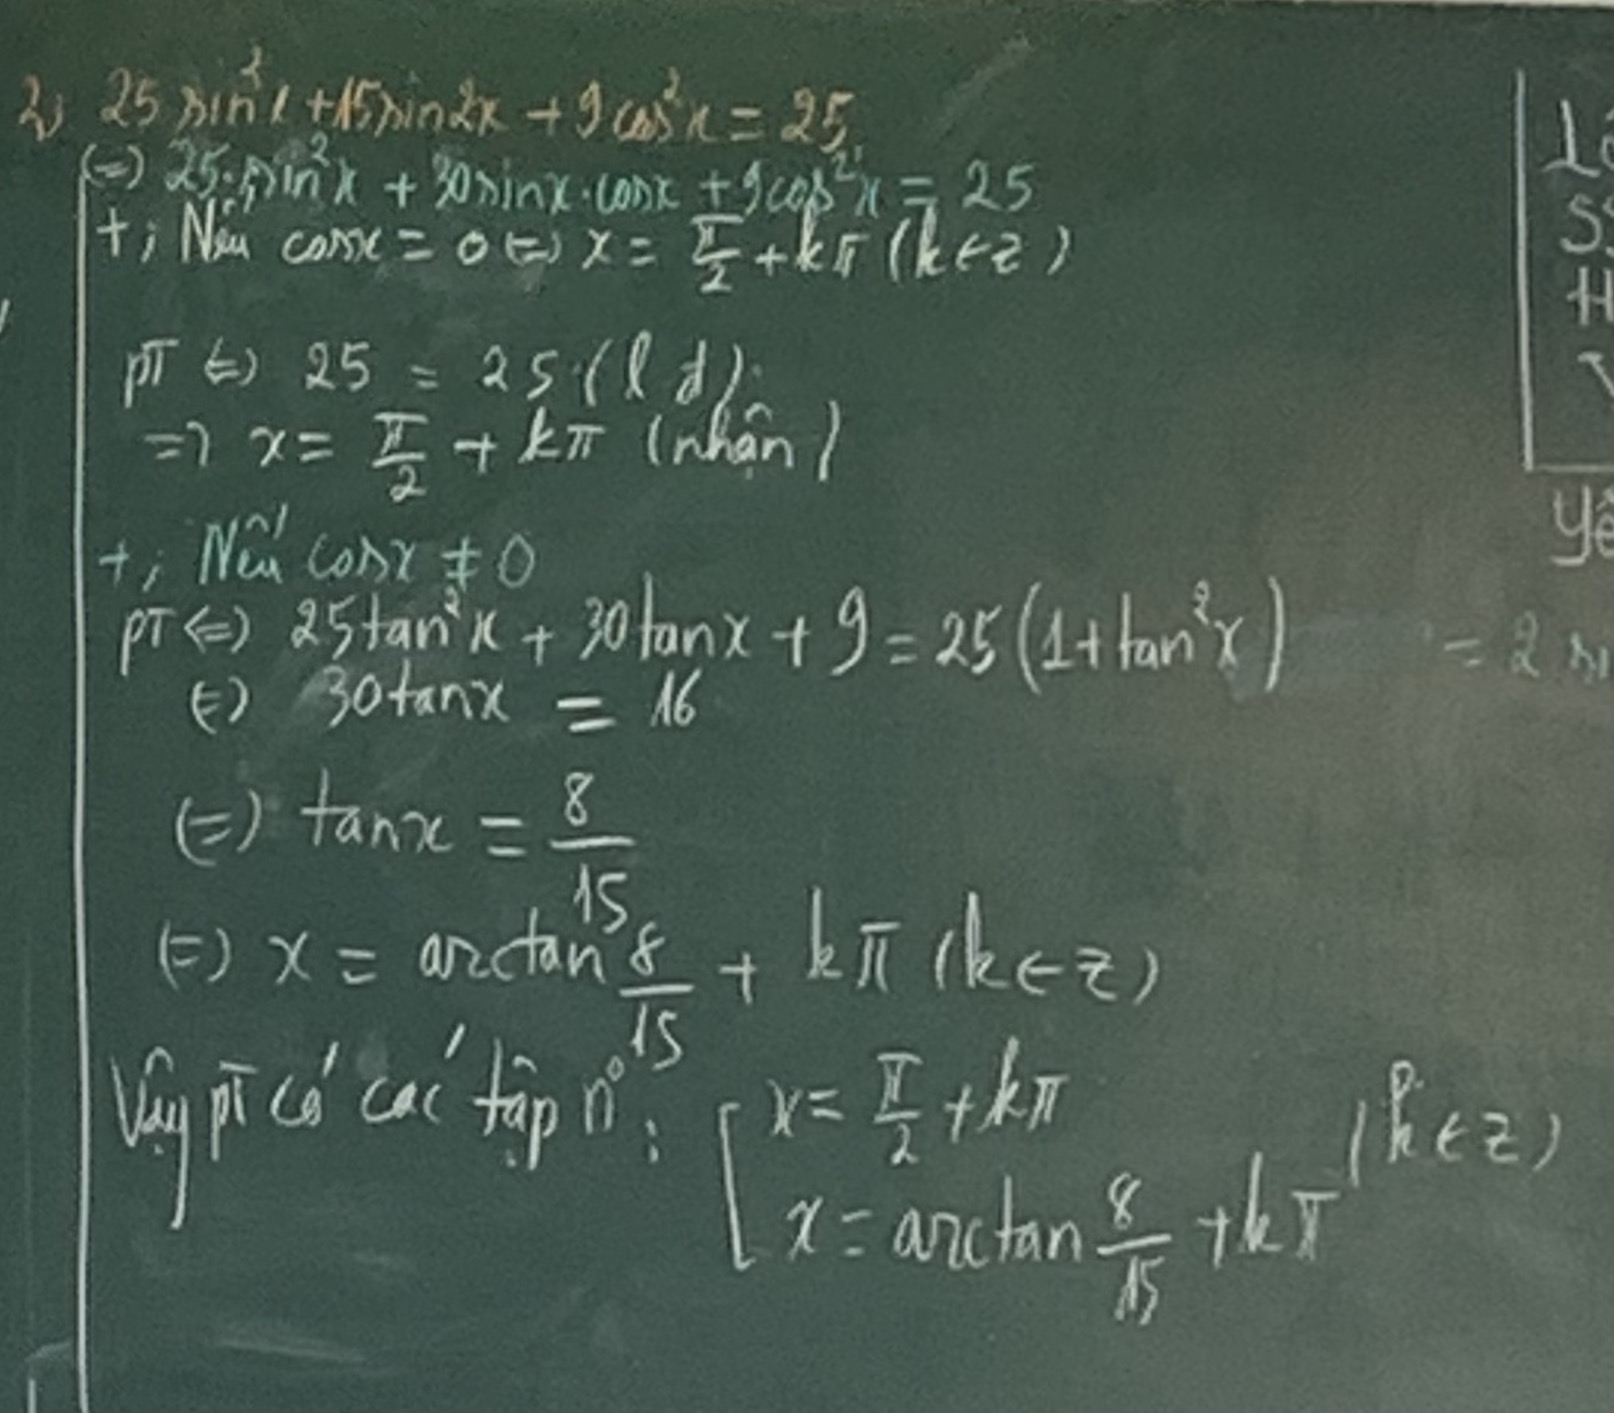 2) 25 sin²x + 15 sin2x + 9 cos²x = 25
(=) 25.sin²x + 30 sinx.cosx + 9cos²x = 25
+; Nếu cosx = 0 (=) x = π/2 + kπ (k ∈ Z)
pT (=) 25 = 25 (lđ)
=> x = π/2 + kπ (nhận)
+; Nếu cosx ≠ 0
pT (=) 25tan²x + 30tanx + 9 = 25(1 + tan²x)
(=) 30tanx = 16
(=) tanx = 8/15
(=) x = arctan 8/15 + kπ (k ∈ Z)
Vậy pT có các tập n°: [ x = π/2 + kπ
x = arctan 8/15 + kπ (k ∈ Z)
H
= 2